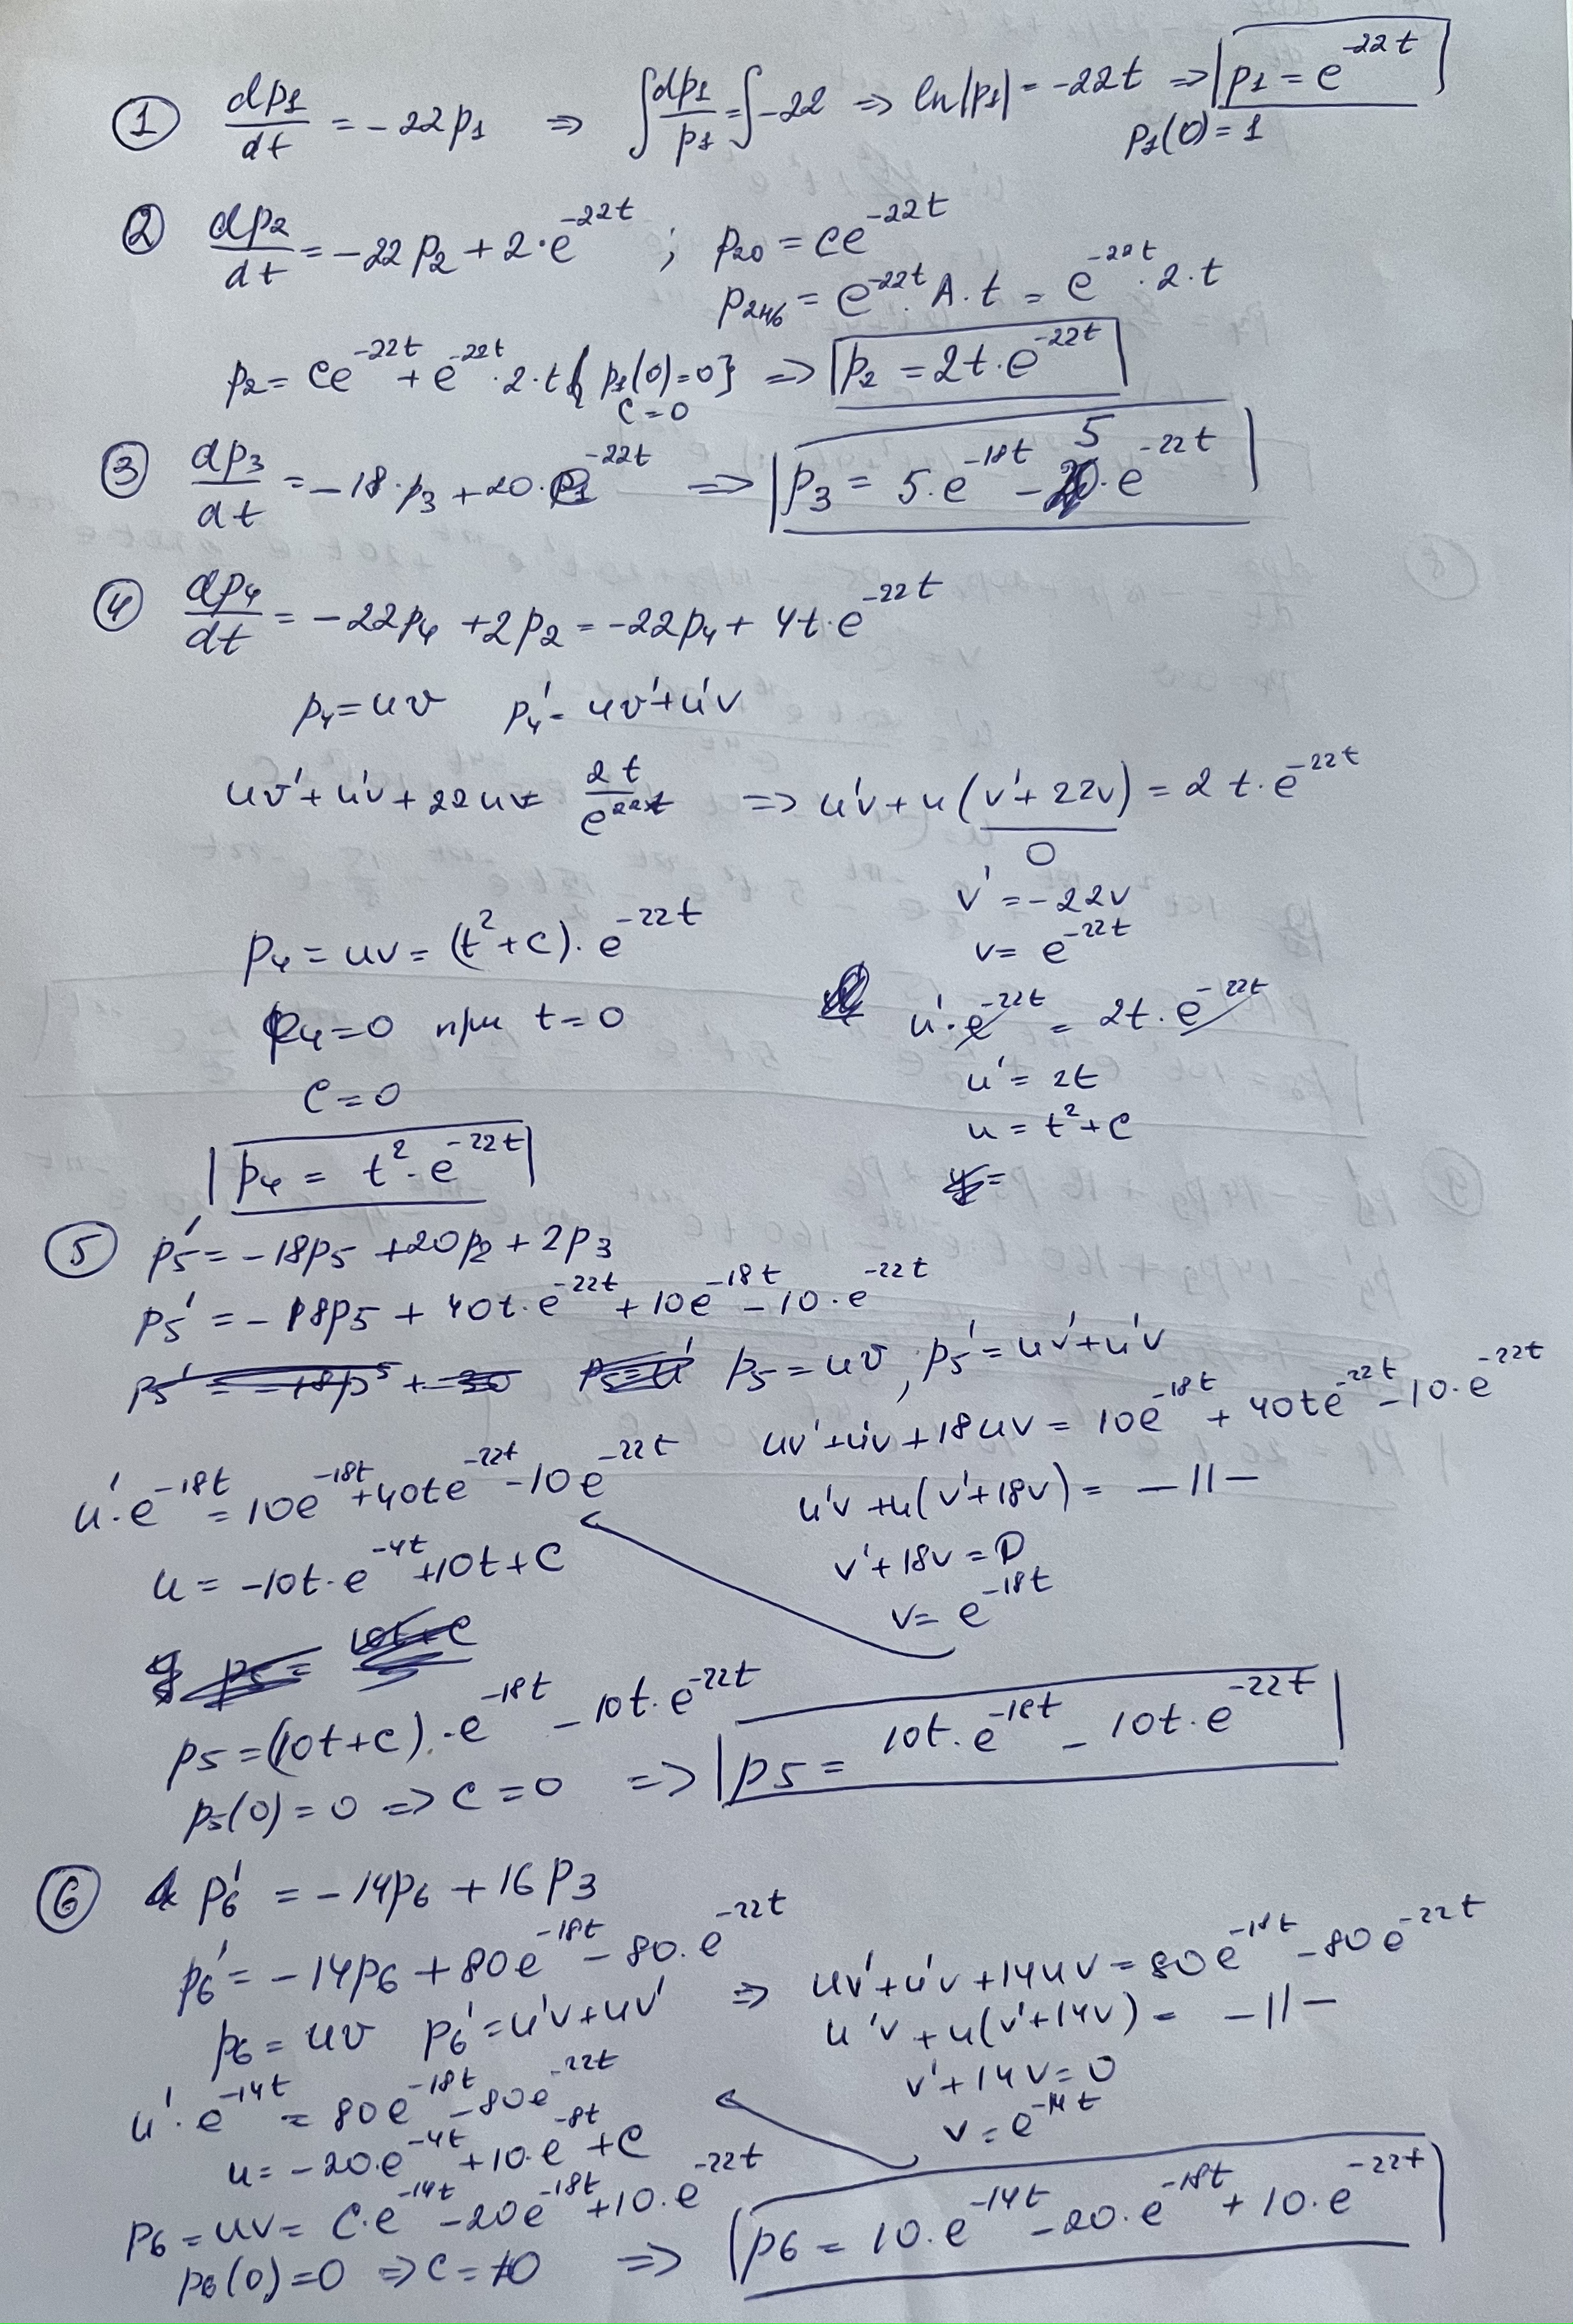 ① dp₁/dt = -22p₁ ⇒ ∫dp₁/p₁ = ∫-22 ⇒ ln|p₁| = -22t ⇒ p₁ = e^{-22t}
p₁(0) = 1
② dp₂/dt = -22p₂ + 2·e^{-22t} ; p₂₀ = ce^{-22t}
p₂чнб = e^{-22t}·A·t = e^{-22t}·2·t
p₂ = ce^{-22t} + e^{-22t}·2·t { p₁(0)=0} ⇒ p₂ = 2t·e^{-22t}
c=0
③ dp₃/dt = -18·p₃ + 20·e^{-22t} ⇒ p₃ = 5·e^{-18t} - 5·e^{-22t}
④ dp₄/dt = -22p₄ + 2p₂ = -22p₄ + 4t·e^{-22t}
p₄ = uv p₄' = uv' + u'v
uv' + u'v + 22uv = 2t/e^{22t} ⇒ u'v + u(v' + 22v) = 2t·e^{-22t}
0
v' = -22v
v = e^{-22t}
u'·e^{-22t} = 2t·e^{-22t}
u' = 2t
u = t² + c
p₄ = uv = (t² + c)·e^{-22t}
p₄ = 0 при t = 0
c = 0
p₄ = t²·e^{-22t}
⑤ p₅' = -18p₅ + 20p₂ + 2p₃
p₅' = -18p₅ + 40t·e^{-22t} + 10e^{-18t} - 10·e^{-22t}
p₅ = uv, p₅' = uv' + u'v
uv' + u'v + 18uv = 10e^{-18t} + 40te^{-22t} - 10·e^{-22t}
u'v + u(v' + 18v) = -11-
v' + 18v = 0
v = e^{-18t}
u'·e^{-18t} = 10e^{-18t} + 40te^{-22t} - 10e^{-22t}
u = -10t·e^{-4t} + 10t + c
p₅ = (10t + c)·e^{-18t} - 10t·e^{-22t}
p₅(0) = 0 ⇒ c = 0 ⇒ p₅ = 10t·e^{-18t} - 10t·e^{-22t}
⑥ p₆' = -14p₆ + 16p₃
p₆' = -14p₆ + 80e^{-18t} - 80·e^{-22t}
p₆ = uv p₆' = u'v + uv' ⇒ uv' + u'v + 14uv = 80e^{-18t} - 80e^{-22t}
u'v + u(v' + 14v) = -11-
v' + 14v = 0
v = e^{-14t}
u'·e^{-14t} = 80e^{-18t} - 80e^{-22t}
u = -20·e^{-4t} + 10·e^{-8t} + c
p₆ = uv = c·e^{-14t} - 20e^{-18t} + 10·e^{-22t}
p₆(0) = 0 ⇒ c = 10 ⇒ p₆ = 10·e^{-14t} - 20·e^{-18t} + 10·e^{-22t}